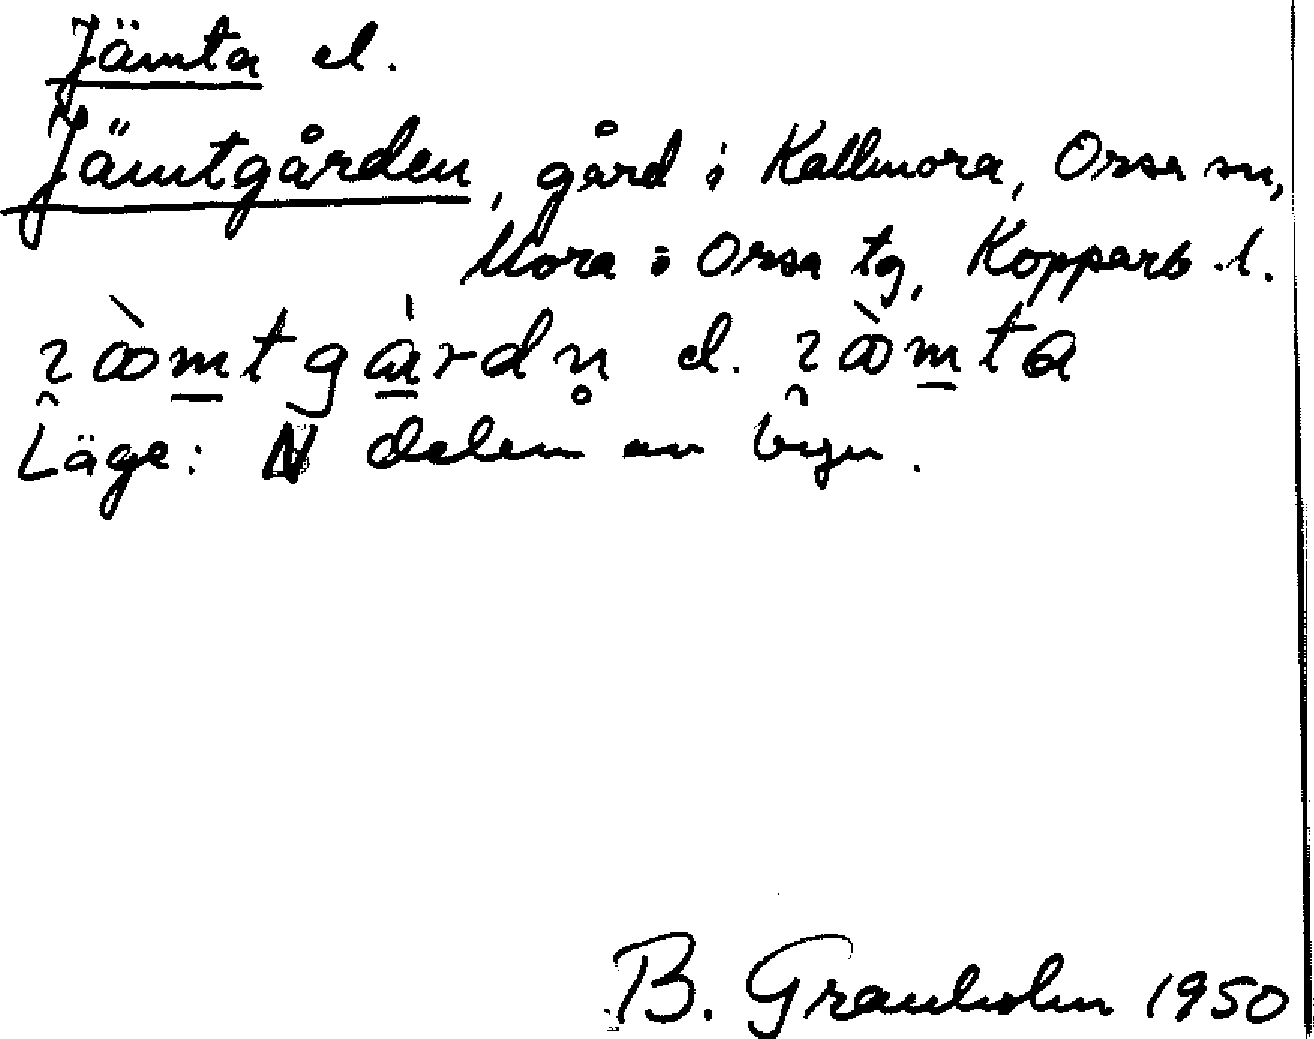 Jämta el.
Jämtgården, gård i Kallmora, Orsa sn,
Mora o Orsa tg, Kopparb. l.
el.
Läge: N delen av byn.
B. Granholm 1950